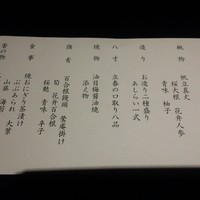 椀物
帆立真丈
桜大根 花弁人参
青味 柚子
造り
お造り二種盛り
あしらい一式
八寸
立春の口取り八品
焼物
油目梅醤油焼
添え物
強肴
百合根饅頭 蟹庵掛け
筍 花弁百合根
桜麩 青味 辛子
食事
焼おにぎり茶漬け
ぶぶあられ 大葉
山葵 海苔
香の物